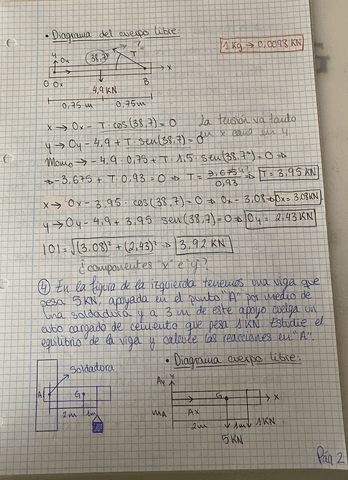 • Diagrama del cuerpo libre
1 Kg → 0,0098 KN
y
Oy
38,7°
T
x
O Ox
B
4,9 KN
0,75 m
0,75 m
x → Ox - T · cos(38,7) = 0
La tensión va tanto
y → Oy - 4,9 + T · sen(38,7) = 0
en x como en y
Mome → -4,9 · 0,75 + T · 1,5 · sen(38,7°) = 0 ⇒
⇒ -3,675 + T · 0,93 = 0 ⇒ T = 3,675 / 0,93 ⇒ T = 3,95 KN
x → Ox - 3,95 · cos(38,7) = 0 ⇒ Ox - 3,08 = 0 Ox = 3,08 KN
y → Oy - 4,9 + 3,95 sen(38,7) = 0 ⇒ Oy = 2,43 KN
|O| = √(3,08)² + (2,43)² ⇒ 3,92 KN
¿componentes "x" e "y"?
④ En la figura de la izquierda tenemos una viga que
pesa 5 KN, apoyada en el punto "A" por medio de
una soldadura y a 3 m de este apoyo cuelga un
cubo cargado de cemento que pesa 1 KN. Estudie el
equilibrio de la viga y calcule las reacciones en "A".
• Diagrama cuerpo libre:
soldadura
A
G
2 m
1 m
Ay
y
G
x
MA
Ax
2 m
1 m
1 KN
5 KN
Pág 2